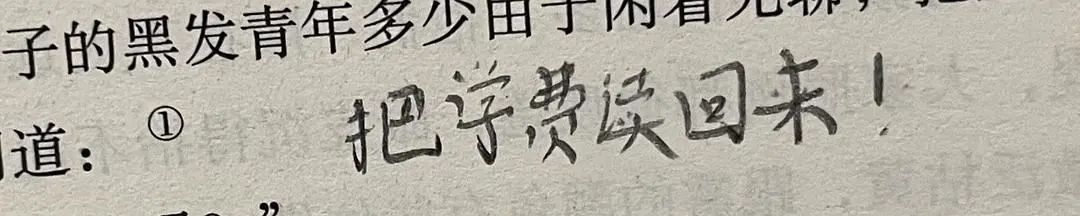 子的黑发青年多少由于闲着无聊，
道：① 把学费读回来！
”